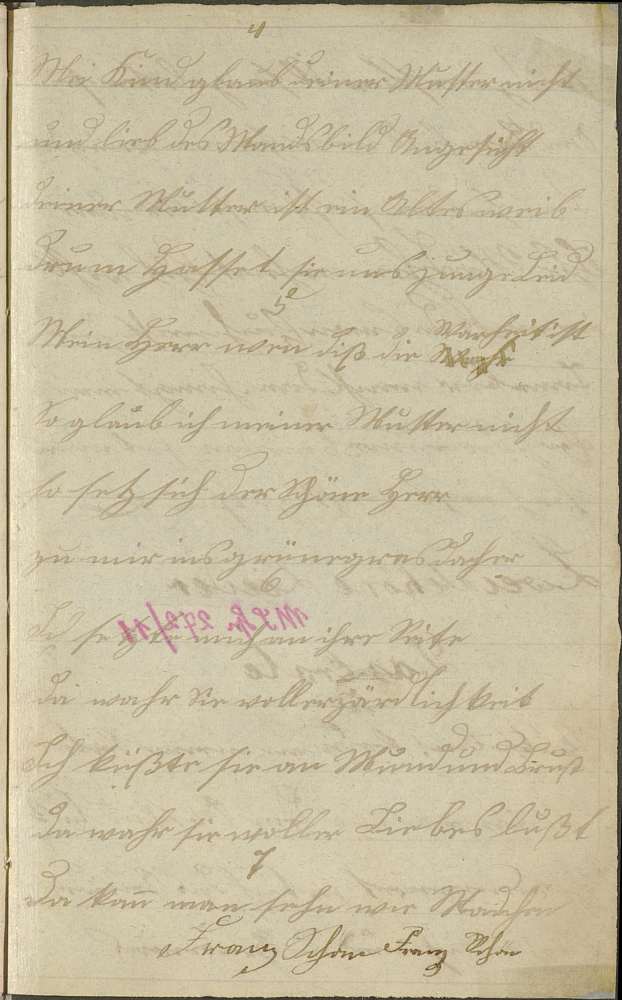 4
Mei Kind glaub deiner Mutter nicht
und lieb des Mandsbild Angesicht
deiner Mutter ist ein Altes weib
drum Hasset sie uns junge Leid
5
Mein Herr wen diß die Warheit ist
So glaub ich meiner Mutter nicht
so setz sich der Schöne Herr
zu mir ins grüne gras daher
Ich setzte mich an ihre Seite
da wahr sie voller zärdlichkeit
Ich küßte sie an Mund und Brust
da wahr sie voller Liebes lußt
7
da kan man sehn wie Mädchen
Franz Schöne Franz Schön